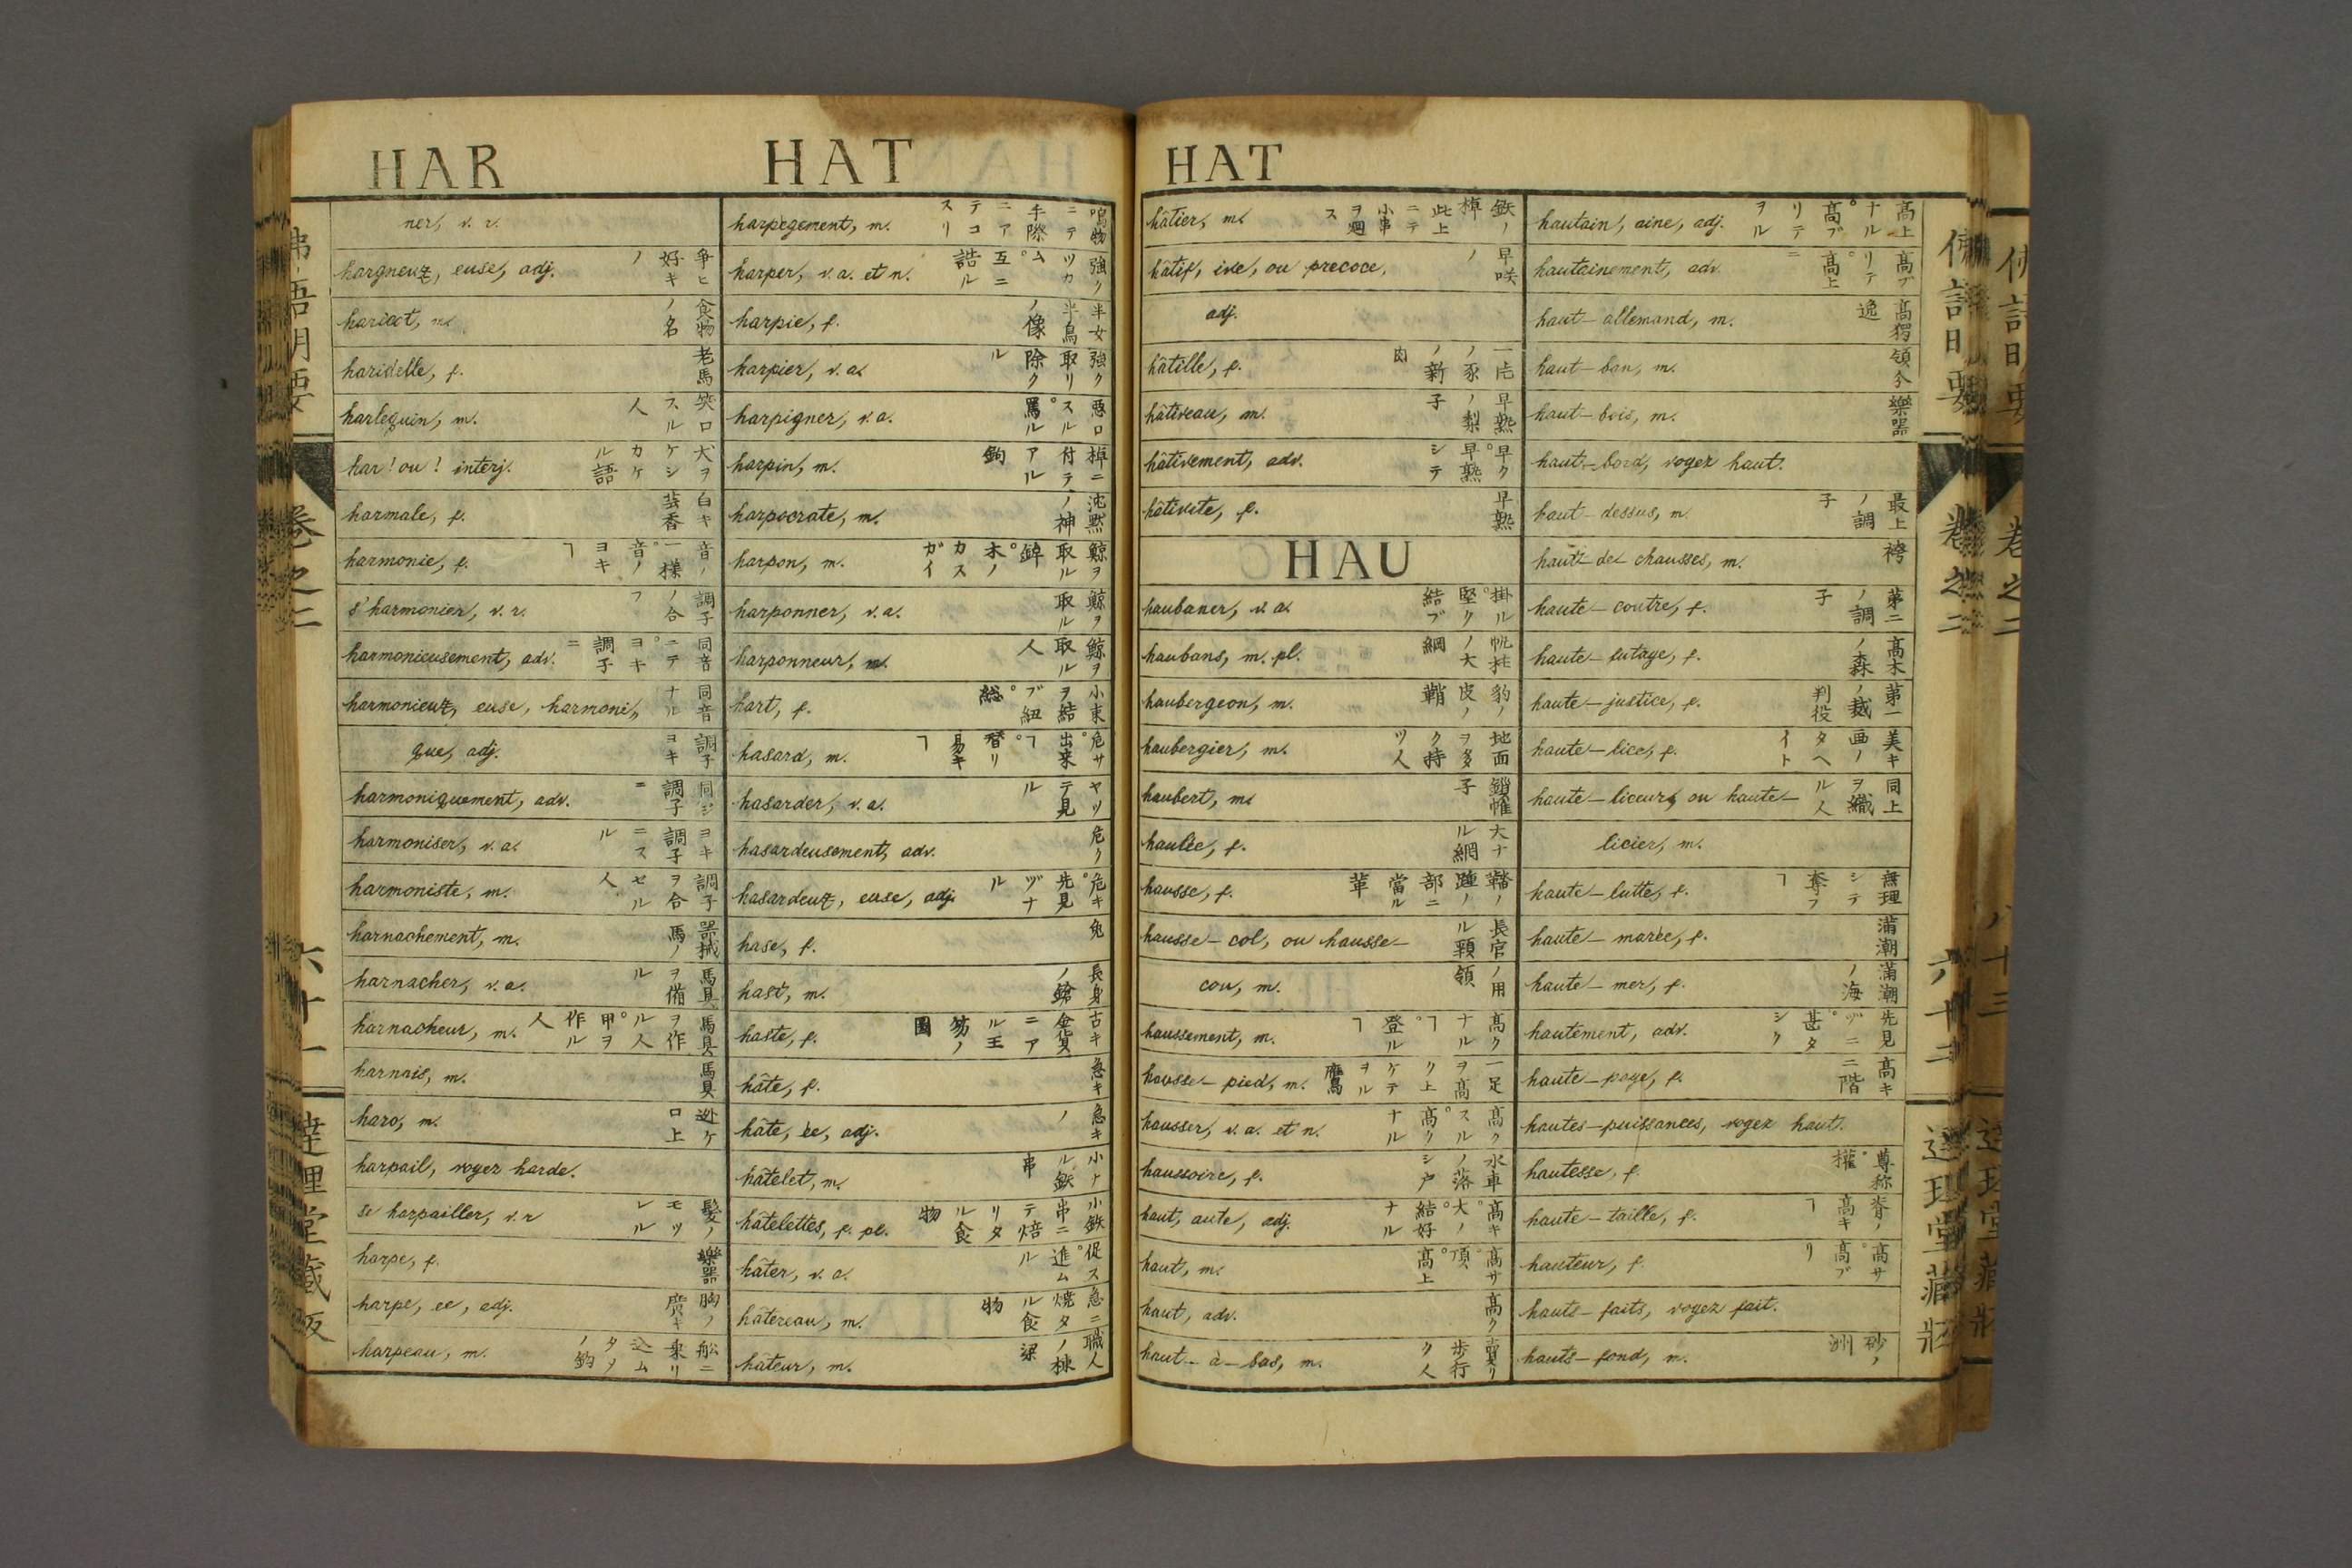 HAR
HAT
ner, v. r.
hargneux, euse, adj. 争ヒ好キノ
haricot, m. 食物ノ名
haridelle, f. 老馬
harlequin, m. 笑口スル人
har! ou! interj. 犬ヲケシカケル語
harmale, f. 白キ芸香
harmonie, f. 音ノ一様。音ノヨキヿ
s'harmonier, v. r. 調子ノ合フ
harmonieusement, adv. 同音ニテ。ヨキ調子ニ
harmonieux, euse, harmoni, 同音ナル
que, adj. 調子ヨキ
harmoniquement, adv. 同ジ調子ニ
harmoniser, v. a. ヨキ調子ニスル
harmoniste, m. 調子ヲ合セル人
harnachement, m. 器械馬ノ
harnacher, v. a. 馬具ヲ備ル
harnacheur, m. 馬具ヲ作ル人。甲ヲ作ル人
harnais, m. 馬具
haro, m. 逃ケ口上
harpail, voyez harde.
se harpailler, v. r 髪ノモツレル
harpe, f. 樂器
harpe, ee, adj. 胸ノ廣キ
harpeau, m. 船ニ乗リ込ムタノヲ鈎
harpegement, m. 鳴物ニテ手際ニアテコリス
harper, v. a. et n. 強クツカム。互ニ誥ル
harpie, f. 半女半鳥ノ像
harpier, v. a. 強ク取リ除クル
harpigner, v. a. 悪口スル。罵ル
harpin, m. 棹ニ付テアル鉤
harpocrate, m. 沈黙ノ神
harpon, m. 鯨ヲ取ル錊。木ノカスガイ
harponner, v. a. 鯨ヲ取ル
harponneur, m. 鯨ヲ取ル人
hart, f. 小束ヲ結ブ紐。総
hasard, m. 危サ。出来ヿ。替リ易キヿ
hasarder, v. a. ヤツテ見ル
hasardeusement, adv. 危ク
hasardeux, euse, adj. 危キ。先見ヅナル
hase, f. 兔
hast, m. 長身ノ鎗
haste, f. 古キ金貨ニアル王笏ノ圖
hâte, f. 急キ
hâte, ée, adj. 急キノ
hâtelet, m. 小ナル鉄串
hâtelettes, f. pl. 小鉄串ニテ焙リタル食物
hâter, v. a. 促ス。進ムル
hâtereau, m. 急ニ焼タル食物
hâteur, m. 職人ノ棟梁
HAT
hâtier, m. 鉄ノ棹此上ニテ小串ヲ廻ス
hâtif, ive, ou precoce, 早咲ノ
adj.
hâtille, f. 一片ノ豕ノ新肉
hâtiveau, m. 早熟ノ梨子
hâtivement, adv. 早ク。早熟シテ
hâtivete, f. 早熟
HAU
haubaner, v. a. 掛ル。堅ク結ブ
haubans, m. pl. 帆柱ノ大綱
haubergeon, m. 豹ノ皮ノ鞘
haubergier, m. 地面ヲ多ク持ツ人
haubert, m. 鎖帷子
haulée, f. 大ナル網
hausse, f. 鞜ノ踵ノ部ニ當ル革
hausse-col, ou hausse- 長官ル頸
cou, m. ノ用領
haussement, m. 高クナルヿ。登ルヿ
hausse-pied, m. 一足ヲ高ク上ケテヲル鷹
hausser, v. a. et n. 高クスル。高クナル
haussoire, f. 水車ノ落シ戸
haut, aute, adj. 高キ。大ノ。結好ナル
haut, m. 高サ。頂。高上
haut, adv. 高ク
haut-à-bas, m. 賣リ歩行ク人
hautain, aine, adj. 高上ナル。高ブリテヲル
hautainement, adv. 高ブリテ。高上ニ
haut-allemand, m. 高獨逸
haut-ban, m. 領分
haut-bois, m. 樂器
haut-bord, voyez haut.
haut-dessus, m. 最上ノ調子
haut-de-chausses, m. 袴
haute-contre, f. 第二ノ調子
haute-futage, f. 高木ノ森
haute-justice, f. 第一ノ裁判役
haute-lice, f. 美キ画ノタヘイト
haute-liceur, ou haute- 同上ヲ織ル人
licier, m.
haute-lutte, f. 無理シテ奪フヿ
haute-marée, f. 満潮
haute-mer, f. 満潮ノ海
hautement, adv. 先見ヅニ。甚タシク
haute-paye, f. 高キ二階
hautes-puissances, voyez haut.
hautesse, f. 尊称。權
haute-taille, f. 脊ノ高キヿ
hauteur, f. 高サ。高ブリ
hauts-faits, voyez fait.
hauts-fond, m. 砂ノ洲
卷之二
六十一
達理堂藏版
卷之二
六十二
達理堂藏